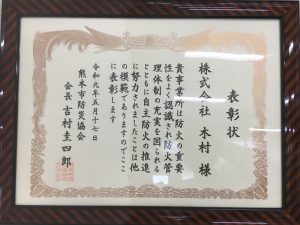 表彰状
株式会社 木村 様
貴事業所は防火の重要
性をよく認識され防火管
理体制の充実を図られる
とともに自主防火の推進
に努力されましたことは他
の模範でありますのでここ
に表彰します
令和元年五月十七日
熊本市防災協会
会長 吉村圭四郎